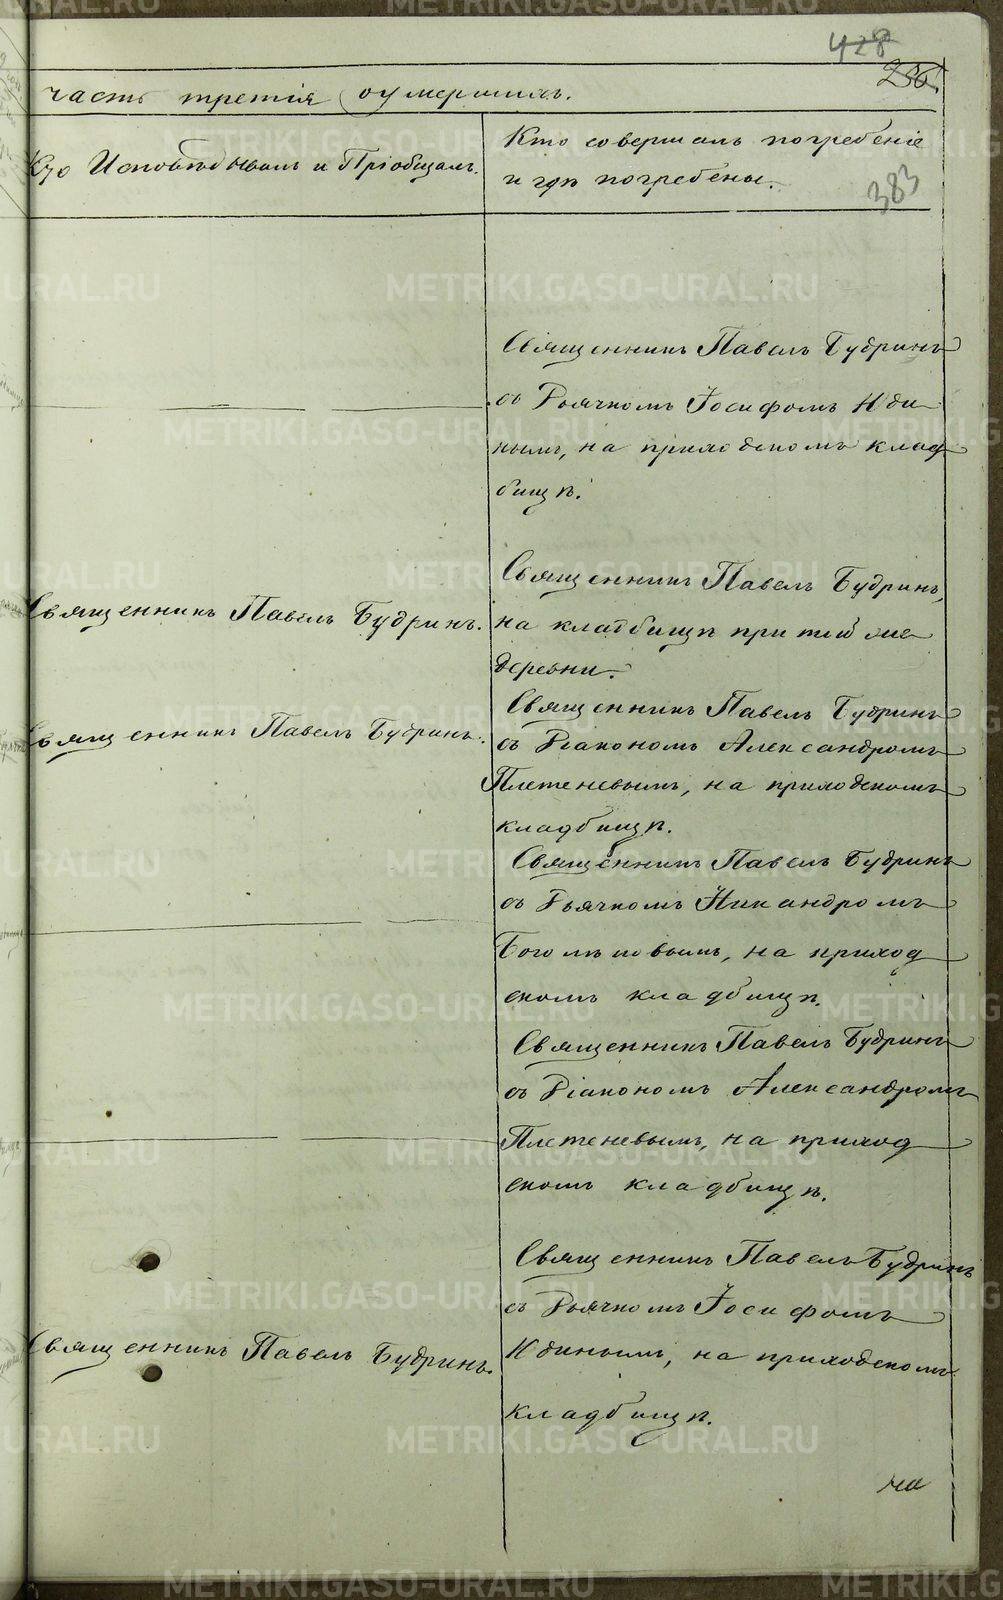 428
236.
часть третія оумершихъ.
Кто Исповѣдывалъ и Пріобщалъ.
Кто совершалъ погребеніе
и гдѣ погребены.
383
Священникъ Павелъ Будринъ
съ Дьячкомъ Іосифомъ Иди
нымъ, на приходскомъ клад
бищѣ.
Священникъ Павелъ Будринъ.
Священникъ Павелъ Будринъ,
на кладбищѣ при той же
деревни.
Священникъ Павелъ Будринъ.
Священникъ Павелъ Будринъ
съ Діакономъ Александромъ
Плетеневымъ, на приходскомъ
кладбищѣ.
Священникъ Павелъ Будринъ
съ Дьячкомъ Никандромъ
Боголѣповымъ, на приход
скомъ кладбищѣ.
Священникъ Павелъ Будринъ
съ Діакономъ Александромъ
Плетеневымъ, на приход
скомъ кладбищѣ.
Священникъ Павелъ Будринъ.
Священникъ Павелъ Будринъ
съ Дьячкомъ Іосифомъ
Идинымъ, на приходскомъ
кладбищѣ.
на
METRIKI.GASO-URAL.RU